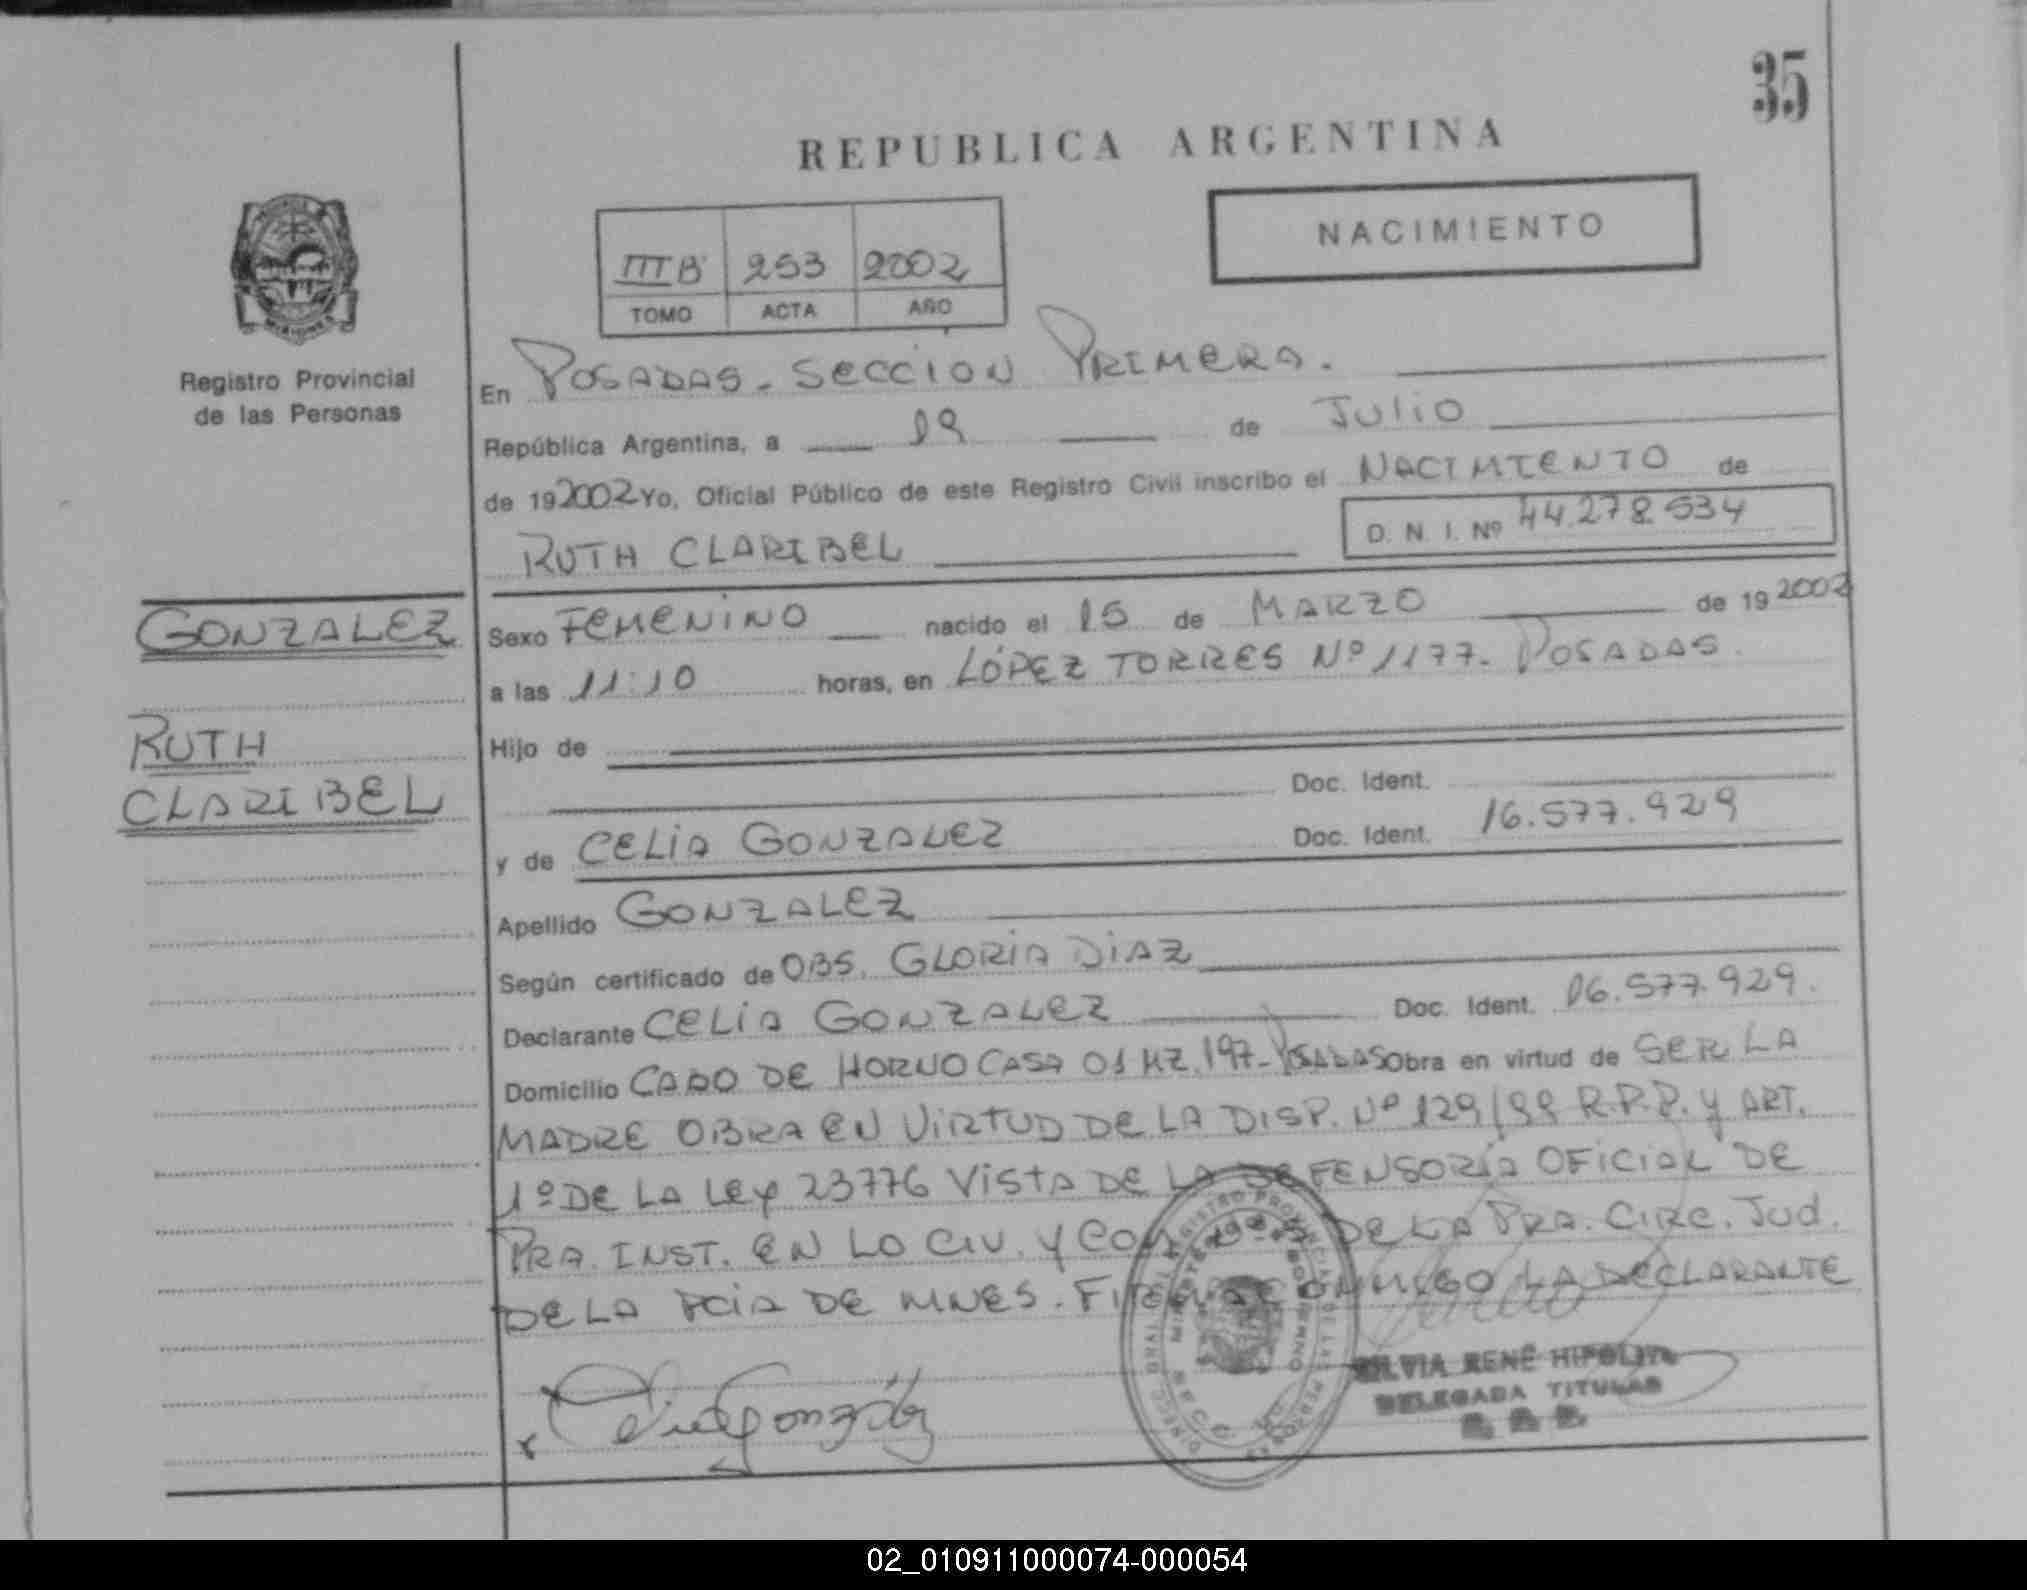 35
REPUBLICA ARGENTINA
NACIMIENTO
III B 253 2002
TOMO ACTA AÑO
MISIONES
Registro Provincial
de las Personas
En POSADAS - SECCION PRIMERA.
República Argentina, a 19 de JULIO
de 192002 Yo, Oficial Público de este Registro Civil inscribo el NACIMIENTO de
RUTH CLARIBEL D. N. I. Nº 44.278.534
GONZALEZ
RUTH
CLARIBEL
Sexo FEMENINO nacido el 15 de MARZO de 19 2002
a las 11:10 horas, en LÓPEZ TORRES Nº 1177. POSADAS.
Hijo de
Doc. Ident.
y de CELIA GONZALEZ Doc. Ident. 16.577.929
Apellido GONZALEZ
Según certificado de OBS. GLORIA DIAZ
Declarante CELIA GONZALEZ Doc. Ident. 16.577.929.
Domicilio CABO DE HORNO CASA 01 MZ. 197 - POSADAS Obra en virtud de SER LA
MADRE OBRA EN VIRTUD DE LA DISP. Nº 129/99 R.P.P. Y ART.
1º DE LA LEY 23776 VISTA DE LA DEFENSORÍA OFICIAL DE
PRA. INST. EN LO CIV. Y DE LA PRA. CIRC. JUD.
DE LA PCIA DE MNES. FIRMA CONMIGO LA DECLARANTE
x Celia González
SILVIA RENÉ HIPOLITO
DELEGADA TITULAR
02_010911000074-000054